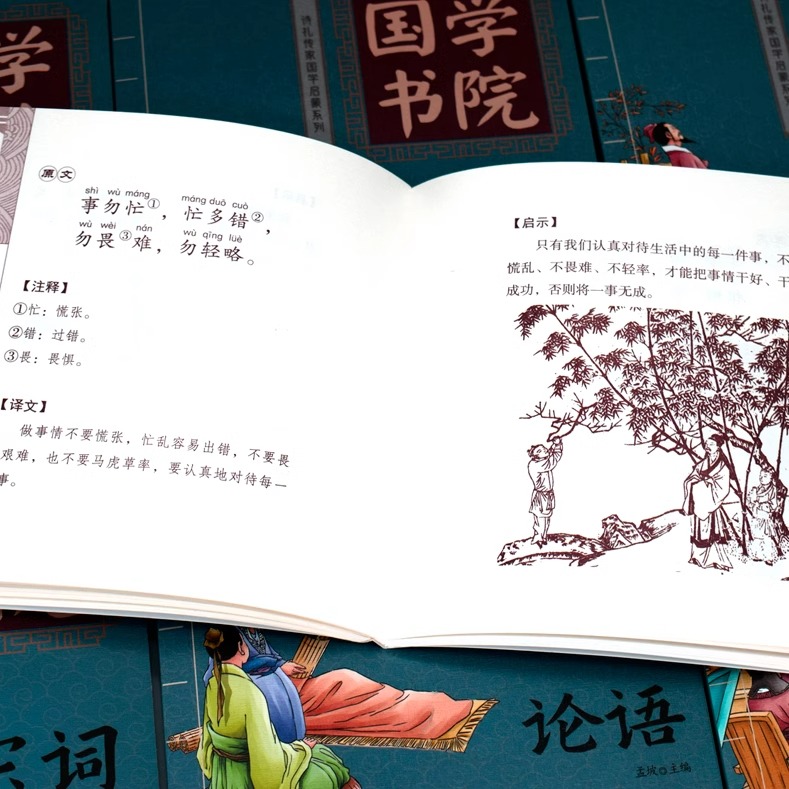 学
国学
书院
诗礼传家国学启蒙系列
原文
shì wù máng máng duō cuò
事勿忙①，忙多错②，
wù wèi nán wù qīng lüè
勿畏③难，勿轻略。
【注释】
①忙：慌张。
②错：过错。
③畏：畏惧。
【译文】
做事情不要慌张，忙乱容易出错，不要畏
艰难，也不要马虎草率，要认真地对待每一
事。
【启示】
只有我们认真对待生活中的每一件事，不
慌乱、不畏难、不轻率，才能把事情干好、干
成功，否则将一事无成。
宋词
论语
孟坡 主编